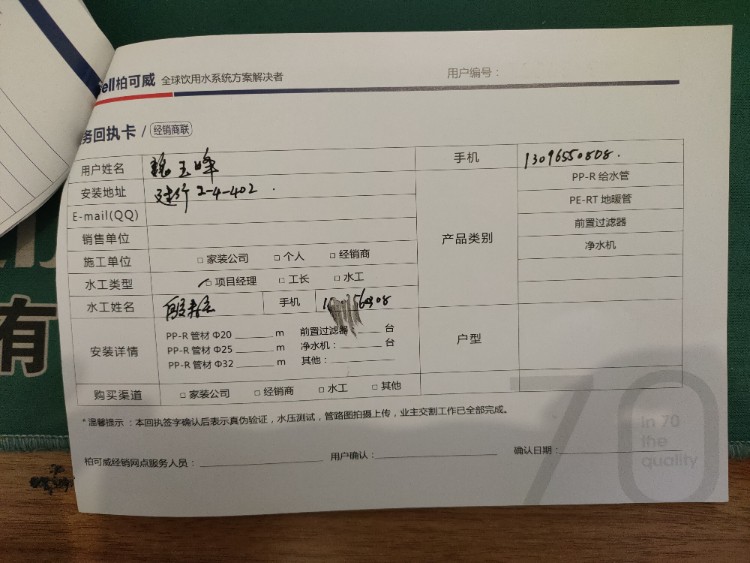 ell柏可威 全球饮用水系统方案解决者 用户编号：
务回执卡 / 经销商联
用户姓名 魏玉峰 手机 13096550808.
安装地址 建行2-4-402. 产品类别 PP-R 给水管
E-mail(QQ) PE-RT 地暖管
销售单位 前置过滤器
施工单位 □ 家装公司 □ 个人 □ 经销商 净水机
水工类型 □ 项目经理 □ 工长 □ 水工
水工姓名 手机
安装详情 PP-R 管材 Φ20 m 前置过滤器： 台 户型
PP-R 管材 Φ25 m 净水机： 台
PP-R 管材 Φ32 m 其他：
购买渠道 □ 家装公司 □ 经销商 □ 水工 □ 其他
*温馨提示 ：本回执签字确认后表示真伪验证，水压测试，管路图拍摄上传，业主交割工作已全部完成。
70
in 70
the
quality
柏可威经销网点服务人员： 用户确认： 确认日期：
有